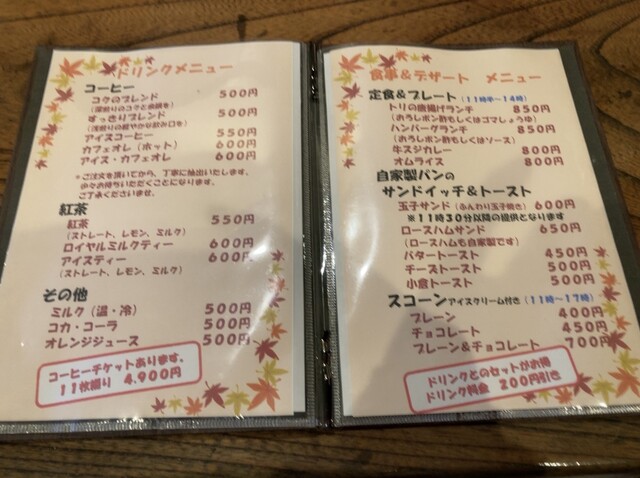 ドリンクメニュー
コーヒー
コクのブレンド 500円
(深煎りのコクと余韻を)
すっきりブレンド 500円
(浅煎りの軽やかな飲み口を)
アイスコーヒー 550円
カフェオレ（ホット） 600円
アイス・カフェオレ 600円
＊ご注文を頂いてから、丁寧に抽出いたします。
少々お待ちいただくことになります。
ご了承くださいませ。
紅茶
紅茶 550円
(ストレート、レモン、ミルク)
ロイヤルミルクティー 600円
アイスティー 600円
(ストレート、レモン、ミルク)
その他
ミルク（温・冷） 500円
コカ・コーラ 500円
オレンジジュース 500円
コーヒーチケットあります。
11枚綴り 4,900円
食事＆デザート メニュー
定食＆プレート (11時半～14時)
トリの唐揚げランチ 850円
(おろしポン酢もしくはゴマしょうゆ)
ハンバーグランチ 850円
(おろしポン酢もしくはソース)
牛スジカレー 800円
オムライス 800円
自家製パンの
サンドイッチ＆トースト
玉子サンド (ふんわり玉子焼き) 600円
※11時30分以降の提供となります
ロースハムサンド 650円
(ロースハムも自家製です)
バタートースト 450円
チーズトースト 500円
小倉トースト 500円
スコーン アイスクリーム付き (11時～17時)
プレーン 400円
チョコレート 450円
プレーン＆チョコレート 700円
ドリンクとのセットがお得
ドリンク料金 200円引き